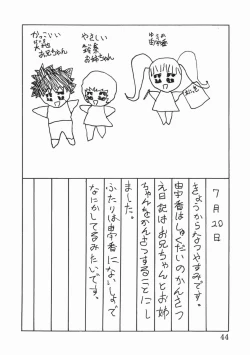 かっこいい
お兄ちゃん
やさしい
お姉ちゃん
7月20日
きょうからなつやすみです。
由宇香はしゅくだいのかんさつ
え日記はお兄ちゃんとお姉
ちゃんをかんさつすることにし
ました。
ふたりは由宇香にないしょで
なにかしてるみたいです。
44